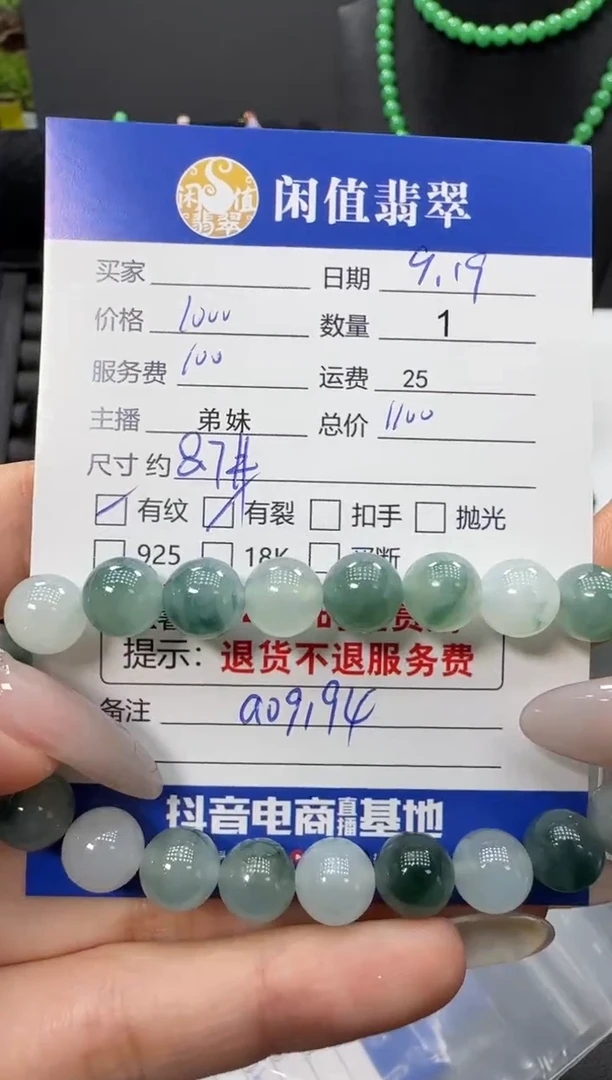 闲值翡翠
闲值翡翠
买家 日期 9.19
价格 1000 数量 1
服务费 100 运费 25
主播 弟妹 总价 1100
尺寸 约 87#
有纹 有裂 扣手 抛光
925 18K 买断
提示：退货不退服务费
备注 a09194
抖音电商直播基地